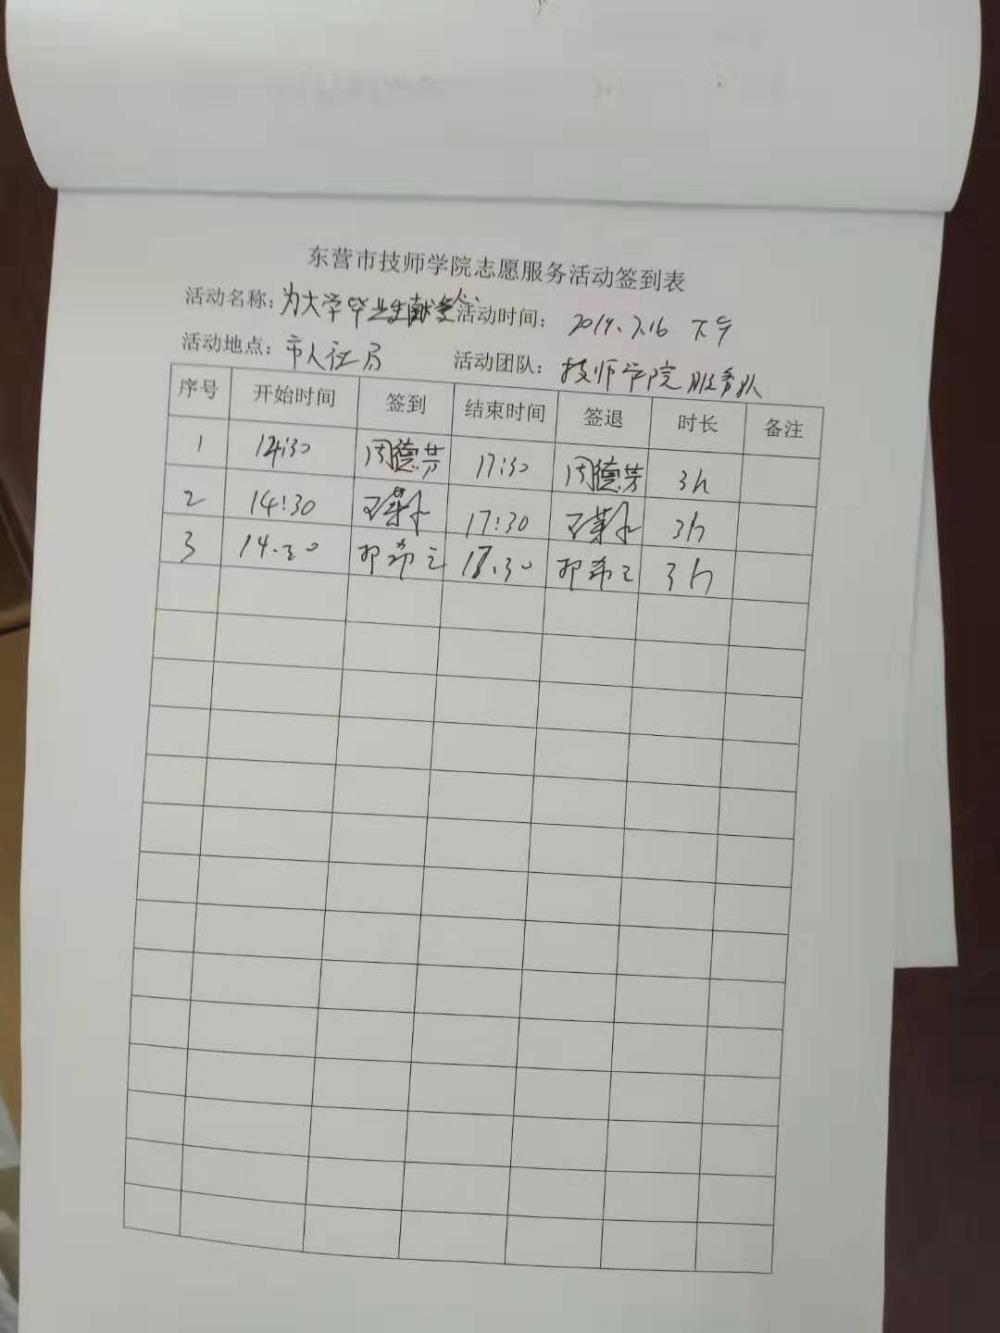 东营市技师学院志愿服务活动签到表
活动名称：为大学毕业生献爱心 活动时间： 2019.7.16 下午
活动地点：市人社局 活动团队：技师学院服务队
序号 开始时间 签到 结束时间 签退 时长 备注
1 14:30 周德芳 17:30 周德芳 3h
2 14:30 17:30 3h
3 14:30 3h